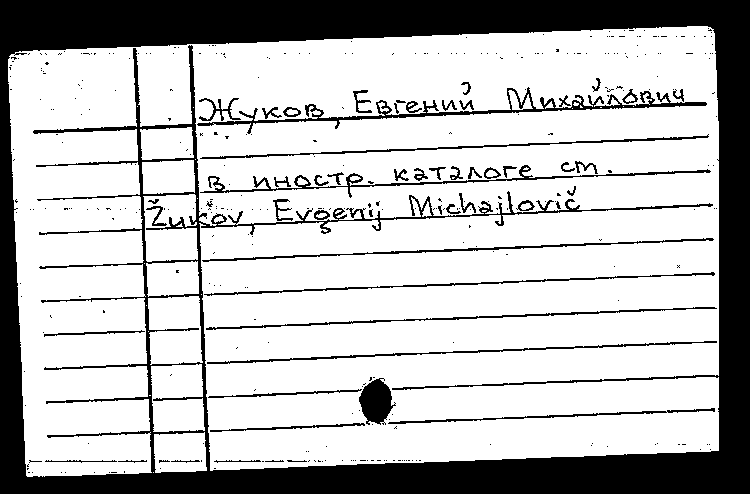 Жуков, Евгений Михайлович
в иностр. каталоге см.
Žukov, Evgenij Michajlovič